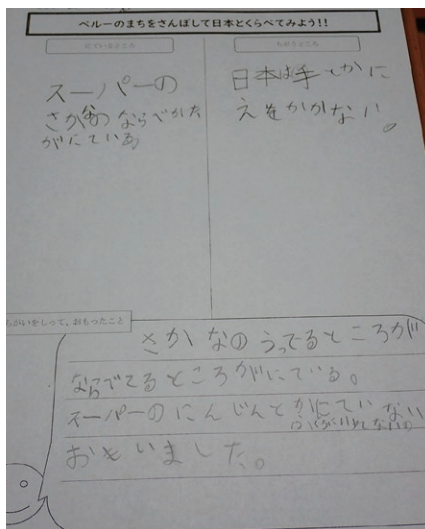 ペルーのまちをさんぽして日本とくらべてみよう!!
にているところ
スーパーの
さかなの ならべかた
がにている
ちがうところ
日本は手しかに
えをかかない。
ちがいをしって、おもったこと
さかなのうってるところが
ならべてるところがにている。
スーパーのにんじんとかにていない
おもいました。